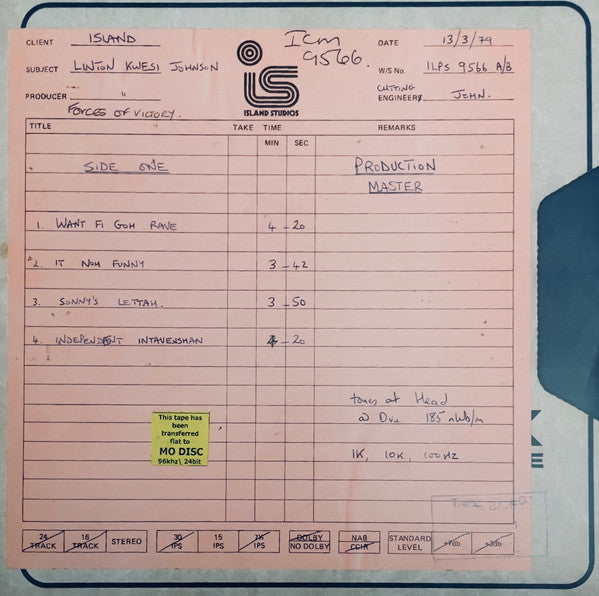 CLIENT ISLAND
ICM 9566.
DATE 13/3/79
SUBJECT LINTON KWESI JOHNSON
W/S No. ILPS 9566 A/B
PRODUCER "
CUTTING ENGINEERS JOHN.
FORCES OF VICTORY.
iS
ISLAND STUDIOS
TITLE TAKE TIME REMARKS
MIN SEC
SIDE ONE PRODUCTION
MASTER
1. WANT FI GOH RAVE 4 - 20
2. IT NOH FUNNY 3 - 42
3. SONNY'S LETTAH. 3 - 50
4. INDEPENDENT INTAVENSHAN 4 - 20
tones at Head
@ 0vu 185 nWb/m
1K, 10K, 100Hz
This tape has
been
transferred
flat to
MO DISC
96khz\ 24bit
24 TRACK 16 TRACK STEREO 30 IPS 15 IPS 7½ IPS DOLBY NO DOLBY NAB CCIR STANDARD LEVEL +7db +3db